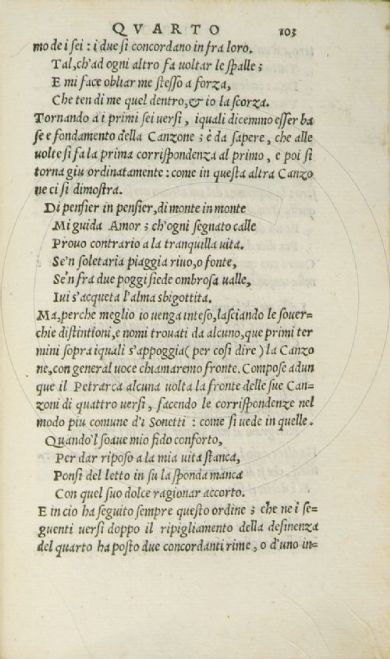 QVARTO 103
mo de i sei: i due si concordano in fra loro.
Tal, ch'ad ogni altro fa voltar le spalle;
E mi face obliar me stesso a forza,
Che ten di me quel dentro, & io la scorza.
Tornando a i primi sei versi, iquali dicemmo esser ba
se e fondamento della Canzone; è da sapere, che alle
volte si fa la prima corrispondenza al primo, e poi si
torna giu ordinatamente: come in questa altra Canzo
ne ci si dimostra.
Di pensier in pensier, di monte in monte
Mi guida Amor; ch'ogni segnato calle
Prouo contrario a la tranquilla vita.
Se'n soletaria piaggia riuo, o fonte,
Se'n fra due poggi siede ombrosa valle,
Iui s'acqueta l'alma sbigottita.
Ma, perche meglio io uenga inteso, lasciando le souer-
chie distintioni, e nomi trouati da alcuno, que primi ter
mini sopra iquali s'appoggia (per cosi dire) la Canzo
ne, con general uoce chiamaremo fronte. Compose adun
que il Petrarca alcuna volta la fronte delle sue Can-
zoni di quattro versi, facendo le corrispondenze nel
modo piu comune d'i Sonetti: come si uede in quelle.
Quando'l soaue mio fido conforto,
Per dar riposo a la mia vita stanca,
Ponsi del letto in su la sponda manca
Con quel suo dolce ragionar accorto.
E in cio ha seguito sempre questo ordine; che ne i se-
guenti versi doppo il ripigliamento della desinenza
del quarto ha posto due concordanti rime, o d'uno in-